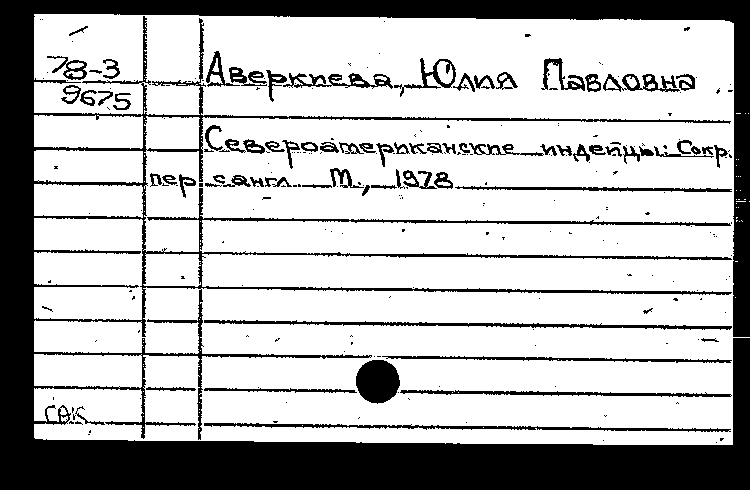 78-3
9675
Аверкиева, Юлия Павловна
Североамериканские индейцы: Сокр.
пер. с англ. М., 1978